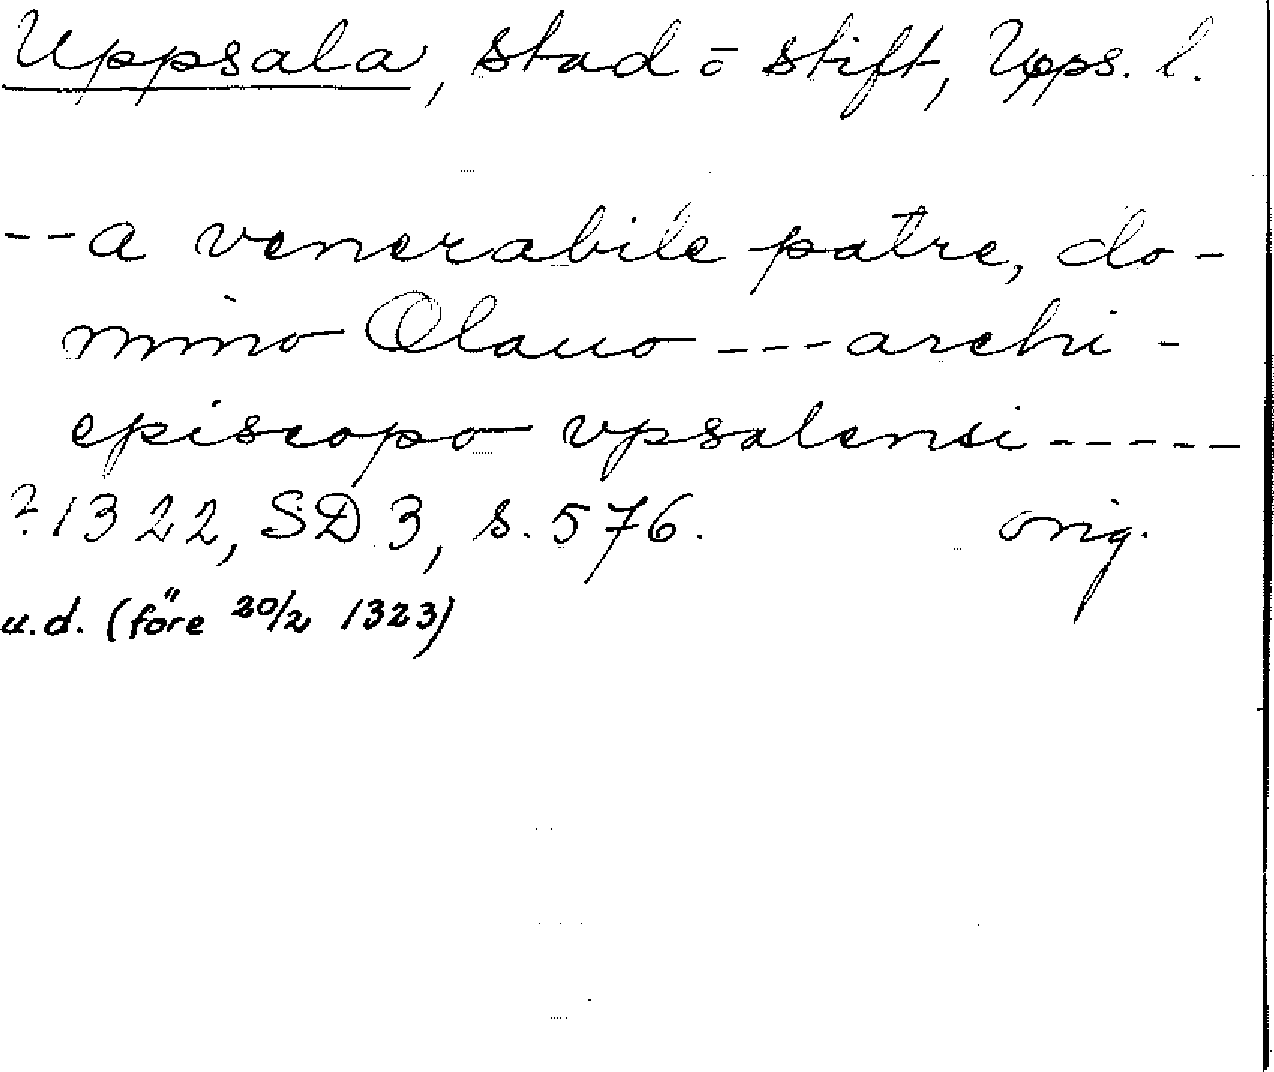 Uppsala, stad o stift, Upps. l.
--a venerabile patre, do-
mino Olauo --- archi-
episcopo vpsalensi -----
?1322, SD 3, s. 576. orig.
u.d. (före 20/2 1323)